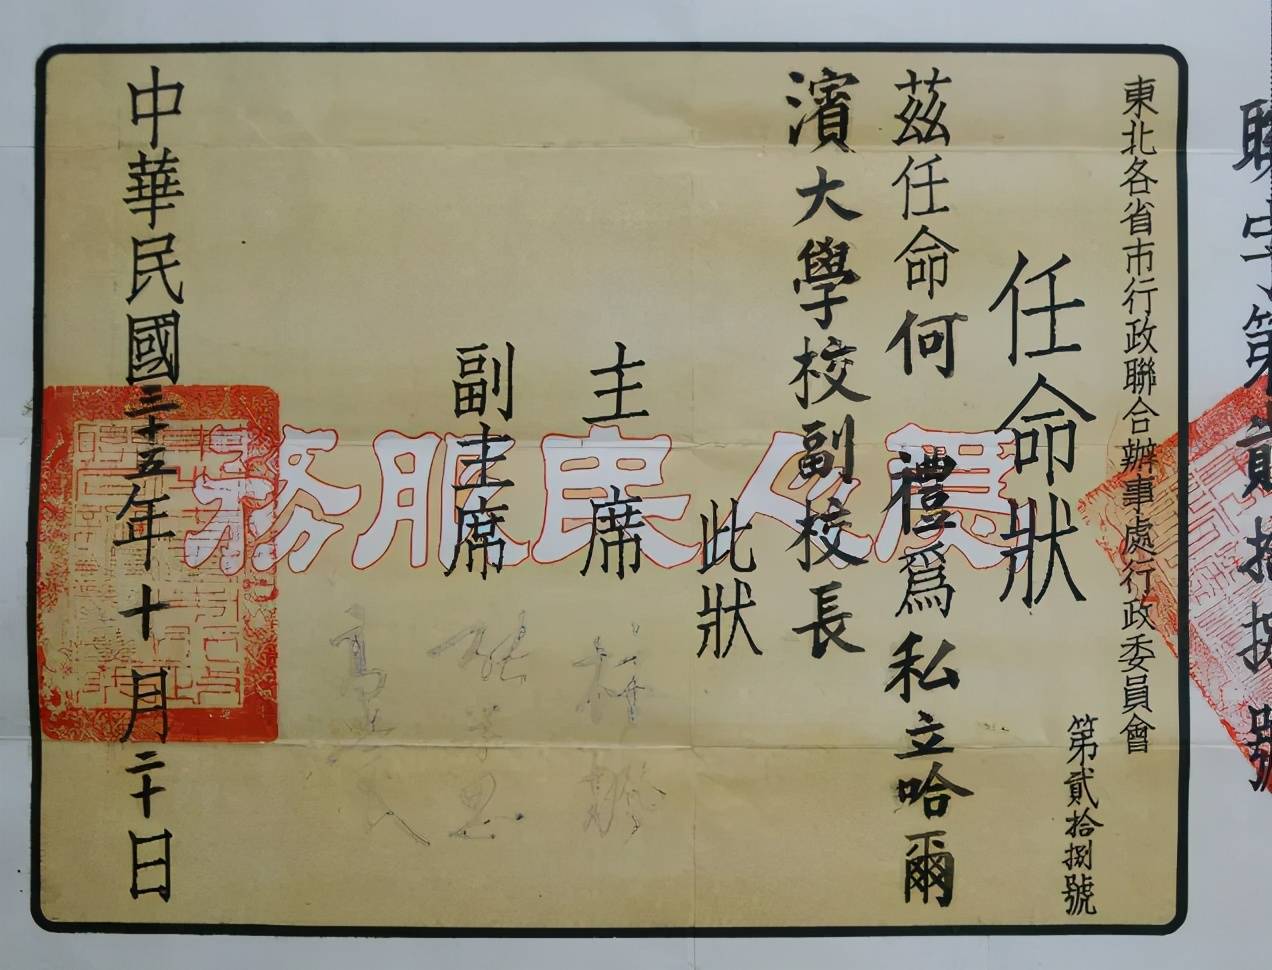 聯字第貳拾捌號
東北各省市行政聯合辦事處行政委員會
第貳拾捌號
任命狀
茲任命何禮爲私立哈爾
濱大學校副校長
此狀
主席 林楓
副主席 張學思
高崇民
中華民國三十五年十月二十日
爲人民服務